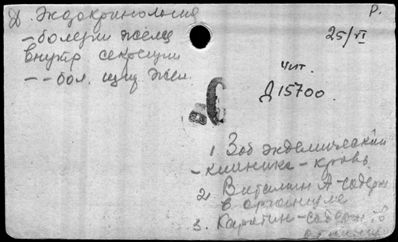 Эндокринология
Р.
- болезни желез
внутр секреции
25/VI
- - бол. щит жел.
Чит.
Д15700.
1 Зоб эндемический
- клиника - кровь
2. Витамин А - содерж
в организме
3. Каротин - содерж в
организ